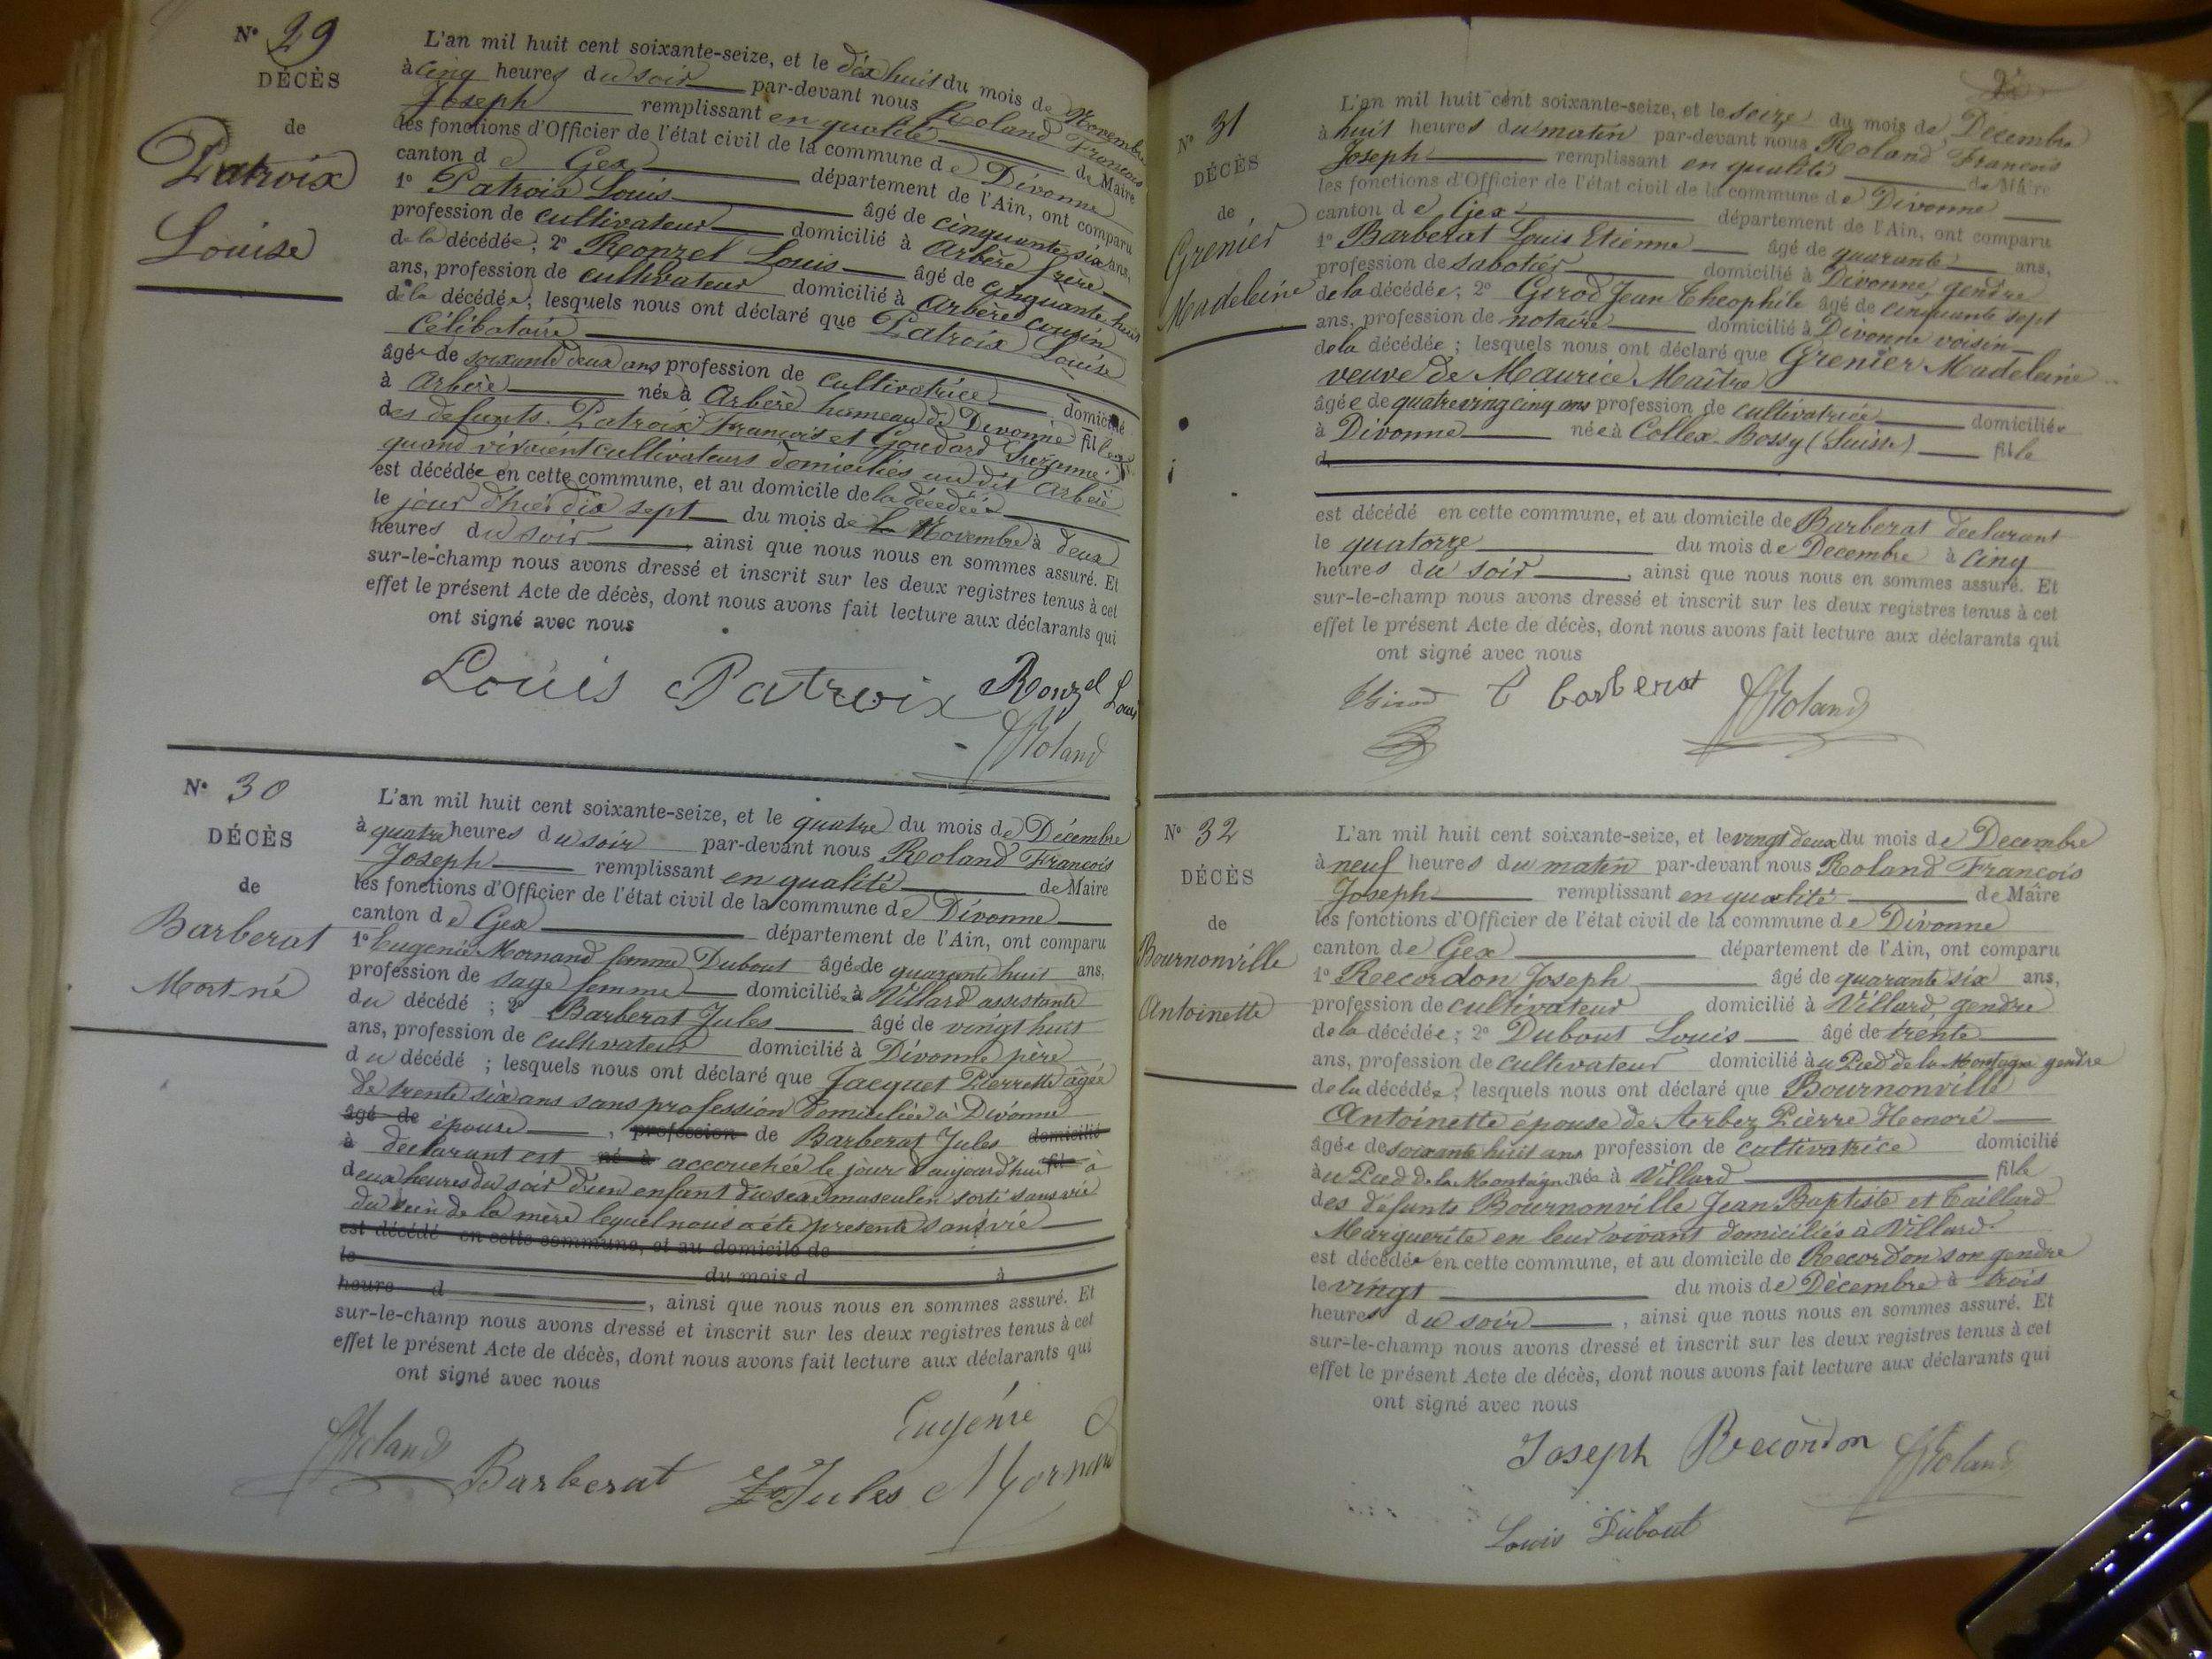 Nº 29
DÉCÈS
de
Patroix
Louise
L'an mil huit cent soixante-seize, et le dix huit du mois de Novembre
à cinq heures du soir par-devant nous Roland François
Joseph remplissant en qualité de Maire
les fonctions d'Officier de l'état civil de la commune de Divonne
canton de Gex département de l'Ain, ont comparu
1º Patroix Louis âgé de cinquante six ans,
profession de cultivateur domicilié à Arbère frère
de la décédée ; 2º Ronzel Louis âgé de cinquante huit
ans, profession de cultivateur domicilié à Arbère cousin
de la décédée ; lesquels nous ont déclaré que Patroix Louise
Célibataire
âgée de soixante deux ans profession de cultivatrice domicilié
à Arbère née à Arbère hameau de Divonne fille
des defunts Patroix François et Goudard Suzanne
quand vivaient cultivateurs domiciliés au dit Arbère
est décédée en cette commune, et au domicile de la décédée
le jour d'hier dix sept du mois de Novembre à deux
heures du soir, ainsi que nous nous en sommes assuré. Et
sur-le-champ nous avons dressé et inscrit sur les deux registres tenus à cet
effet le présent Acte de décès, dont nous avons fait lecture aux déclarants qui
ont signé avec nous
Louis Patroix Ronzel Louis
Roland
Nº 30
DÉCÈS
de
Barberat
Mort-né
L'an mil huit cent soixante-seize, et le quatre du mois de Décembre
à quatre heures du soir par-devant nous Roland François
Joseph remplissant en qualité de Maire
les fonctions d'Officier de l'état civil de la commune de Divonne
canton de Gex département de l'Ain, ont comparu
1º Eugenie Mornand femme Dubout âgée de quarante huit ans,
profession de sage femme domiciliée à Villard assistante
du décédé ; 2º Barberat Jules âgé de vingt huit
ans, profession de cultivateur domicilié à Divonne père
du décédé ; lesquels nous ont déclaré que Jacquet Pierrette âgée
de trente six ans sans profession domiciliée à Divonne
âgé de épouse, profession de Barberat Jules domicilié
à declarant est né à accouchée le jour d'aujourd'hui fil à
deux heures du soir d'un enfant du sexe masculin sorti sans vie
du sein de la mère lequel nous a été presenté sans vie
est décédé en cette commune, et au domicile de
le du mois d à
heure d, ainsi que nous nous en sommes assuré. Et
sur-le-champ nous avons dressé et inscrit sur les deux registres tenus à cet
effet le présent Acte de décès, dont nous avons fait lecture aux déclarants qui
ont signé avec nous
Roland Barberat Jules Eugénie Mornand
Nº 31
DÉCÈS
de
Grenier
Madeleine
L'an mil huit cent soixante-seize, et le seize du mois de Décembre
à huit heures du matin par-devant nous Roland François
Joseph remplissant en qualité de Maire
les fonctions d'Officier de l'état civil de la commune de Divonne
canton de Gex département de l'Ain, ont comparu
1º Barberat Louis Etienne âgé de quarante ans,
profession de sabotier domicilié à Divonne gendre
de la décédée ; 2º Girod Jean Théophile âgé de cinquante sept
ans, profession de notaire domicilié à Divonne voisin
de la décédée ; lesquels nous ont déclaré que Grenier Madeleine
veuve de Maurice Maître
âgée de quatre vingt cinq ans profession de cultivatrice domiciliée
à Divonne née à Collex-Bossy (Suisse) fille
d
est décédé en cette commune, et au domicile de Barberat declarant
le quatorze du mois de Decembre à cinq
heures du soir, ainsi que nous nous en sommes assuré. Et
sur-le-champ nous avons dressé et inscrit sur les deux registres tenus à cet
effet le présent Acte de décès, dont nous avons fait lecture aux déclarants qui
ont signé avec nous
barberat Roland
Nº 32
DÉCÈS
de
Bournonville
Antoinette
L'an mil huit cent soixante-seize, et le vingt deux du mois de Decembre
à neuf heures du matin par-devant nous Roland François
Joseph remplissant en qualité de Maire
les fonctions d'Officier de l'état civil de la commune de Divonne
canton de Gex département de l'Ain, ont comparu
1º Recordon Joseph âgé de quarante six ans,
profession de cultivateur domicilié à Villard gendre
de la décédée ; 2º Dubout Louis âgé de trente
ans, profession de cultivateur domicilié au Pied de la Montagne gendre
de la décédée ; lesquels nous ont déclaré que Bournonville
Antoinette épouse de Arbez Pierre Honoré
âgée de soixante huit ans profession de cultivatrice domicilié
au Pied de la Montagne née à Villard fille
des défunts Bournonville Jean Baptiste et Taillard
Marguerite en leur vivant domiciliés à Villard
est décédée en cette commune, et au domicile de Recordon son gendre
le vingt du mois de Décembre à trois
heures du soir, ainsi que nous nous en sommes assuré. Et
sur-le-champ nous avons dressé et inscrit sur les deux registres tenus à cet
effet le présent Acte de décès, dont nous avons fait lecture aux déclarants qui
ont signé avec nous
Joseph Recordon Roland
Louis Dubout